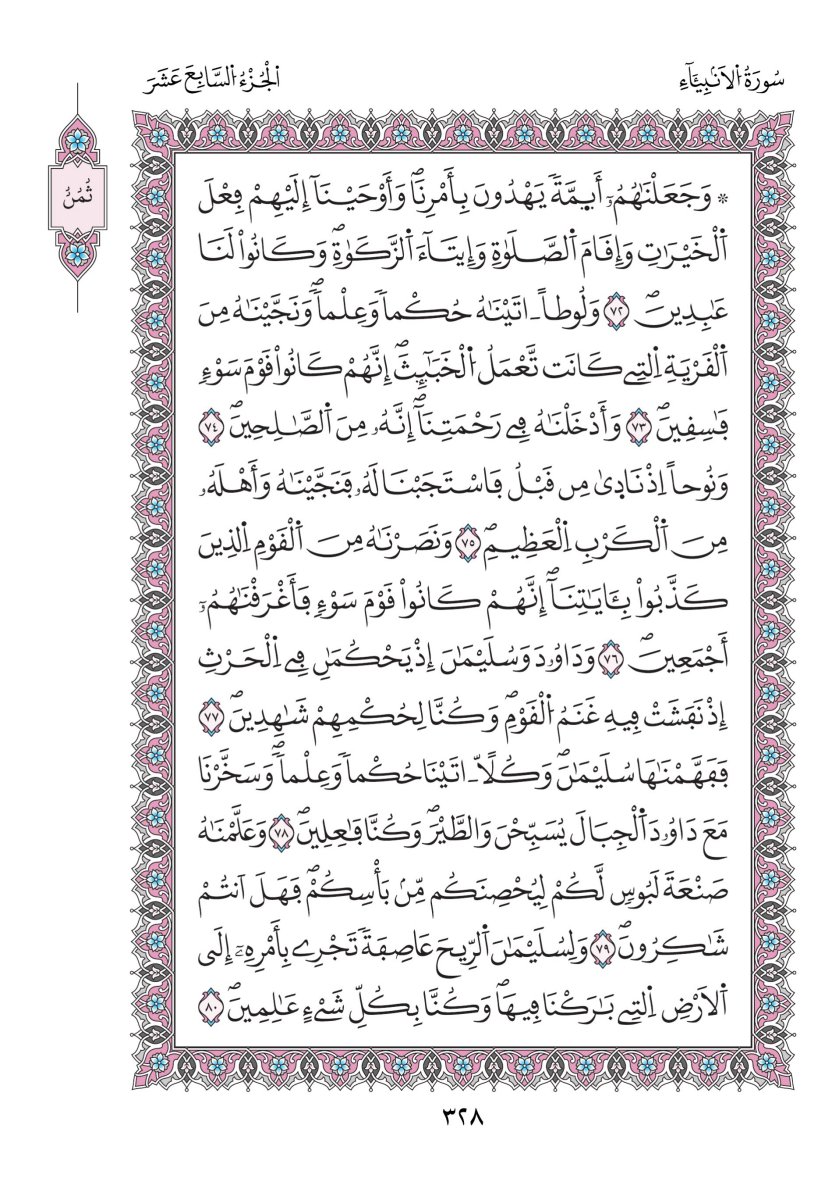 سُورَةُ اُ۬لَانۢبِيَآءِ
اَ۬لْجُزْءُ اُ۬لسَّابِعَ عَشَرَ
ثُمُنُ
۞ وَجَعَلْنَٰهُمُۥٓ أَيِمَّةٗ يَهْدُونَ بِأَمْرِنَاۖ وَأَوْحَيْنَآ إِلَيْهِمْ فِعْلَ
اَ۬لْخَيْرَٰتِ وَإِقَامَ اَ۬لصَّلَوٰةِ وَإِيتَآءَ اَ۬لزَّكَوٰةِۖ وَكَانُواْ لَنَا
عَٰبِدِينَۖ ٧٢ وَلُوطاً ـ اتَيْنَٰهُ حُكْماٗ وَعِلْماٗۖ وَنَجَّيْنَٰهُ مِنَ
اَ۬لْقَرْيَةِ اِ۬لتِے كَانَت تَّعْمَلُ اُ۬لْخَبَٰٓئِثَۖ إِنَّهُمْ كَانُواْ قَوْمَ سَوْءٖ
فَٰسِقِينَۖ ٧٣ وَأَدْخَلْنَٰهُ فِے رَحْمَتِنَآۖ إِنَّهُۥ مِنَ اَ۬لصَّٰلِحِينَۖ ٧٤
وَنُوحاً اِذْ نَاد۪يٰ مِن قَبْلُ فَاسْتَجَبْنَا لَهُۥ فَنَجَّيْنَٰهُ وَأَهْلَهُۥ
مِنَ اَ۬لْكَرْبِ اِ۬لْعَظِيمِۖ ٧٥ وَنَصَرْنَٰهُ مِنَ اَ۬لْقَوْمِ اِ۬لذِينَ
كَذَّبُواْ بِـَٔايَٰتِنَآۖ إِنَّهُمْ كَانُواْ قَوْمَ سَوْءٖ فَأَغْرَقْنَٰهُمُۥٓ
أَجْمَعِينَۖ ٧٦ وَدَاوُۥدَ وَسُلَيْمَٰنَ إِذْ يَحْكُمَٰنِ فِے اِ۬لْحَرْثِ
إِذْ نَفَشَتْ فِيهِ غَنَمُ اُ۬لْقَوْمِۖ وَكُنَّا لِحُكْمِهِمْ شَٰهِدِينَۖ ٧٧
فَفَهَّمْنَٰهَا سُلَيْمَٰنَۖ وَكُلّاً ـ اتَيْنَا حُكْماٗ وَعِلْماٗۖ وَسَخَّرْنَا
مَعَ دَاوُۥدَ اَ۬لْجِبَالَ يُسَبِّحْنَ وَالطَّيْرَۖ وَكُنَّا فَٰعِلِينَۖ ٧٨ وَعَلَّمْنَٰهُ
صَنْعَةَ لَبُوسٖ لَّكُمْ لِيُحْصِنَكُم مِّنۢ بَأْسِكُمْۖ فَهَلَ اَنتُمْ
شَٰكِرُونَۖ ٧٩ وَلِسُلَيْمَٰنَ اَ۬لرِّيحَ عَاصِفَةٗ تَجْرِے بِأَمْرِهِۦٓ إِلَى
اَ۬لَارْضِ اِ۬لتِے بَٰرَكْنَا فِيهَاۖ وَكُنَّا بِكُلِّ شَےْءٍ عَٰلِمِينَۖ ٨٠
٣٢٨